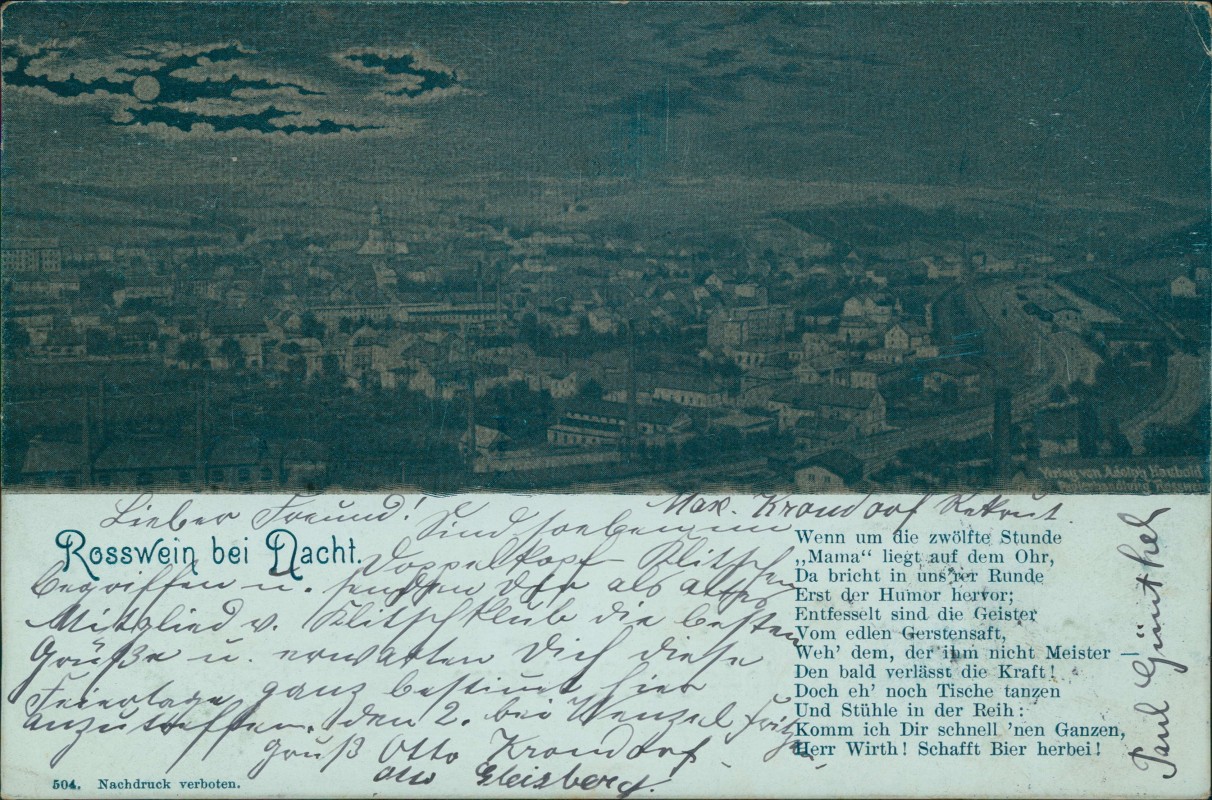 Verlag von Adolph Haubold
Papierhandlung Rosswein
Lieber Freund!
Max. Krondorf Rekrut.
Rosswein bei Nacht.
Sind soeben im
Doppelkopf Klitschen
begriffen u. senden Dir als altes
Mitglied v. Klitschklub die besten
Grüße u. erwarten Dich diese
Feiertage ganz bestimmt hier
anzutreffen. Den 2. bei Wenzel Fritz.
Gruß Otto Krondorf
Otto Gleisberg.
Wenn um die zwölfte Stunde
„Mama“ liegt auf dem Ohr,
Da bricht in uns'rer Runde
Erst der Humor hervor;
Entfesselt sind die Geister
Vom edlen Gerstensaft,
Weh' dem, der ihm nicht Meister —
Den bald verlässt die Kraft!
Doch eh' noch Tische tanzen
Und Stühle in der Reih:
Komm ich Dir schnell 'nen Ganzen,
Herr Wirth! Schafft Bier herbei!
Paul Günthel
504. Nachdruck verboten.